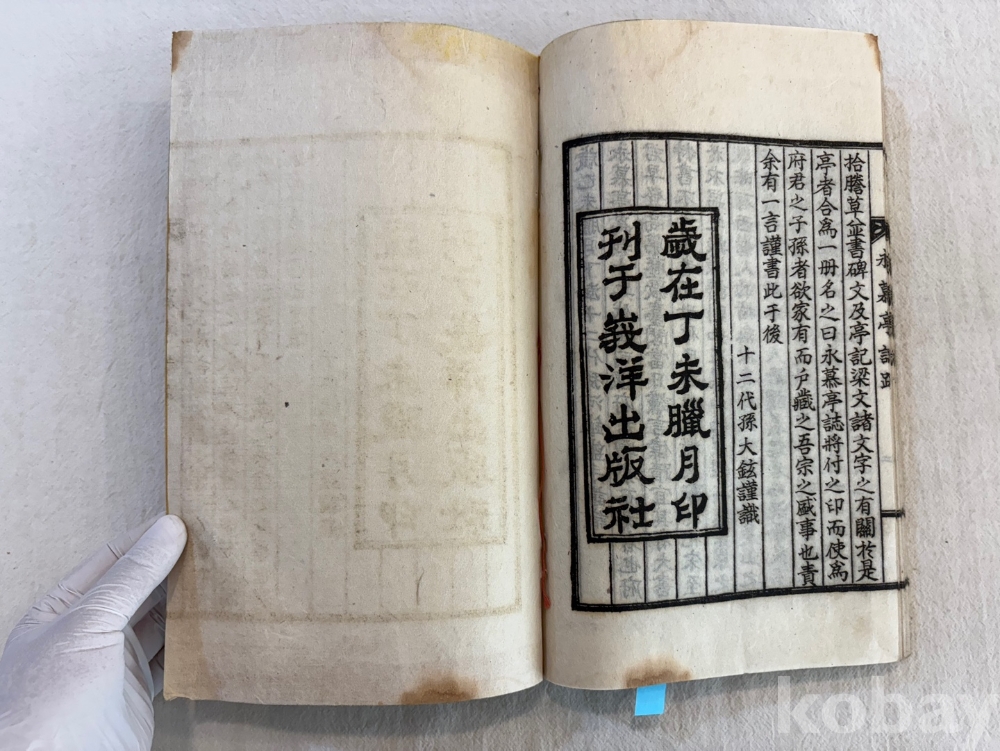 永慕亭誌跋
拾謄草並書碑文及亭記梁文諸文字之有關於是
亭者合爲一册名之曰永慕亭誌將付之印而使爲
府君之子孫者欲家有而户藏之吾宗之盛事也責
余有一言謹書此于後
十二代孫大鉉謹識
歲在丁未臘月印
刊于峩洋出版社
kobay